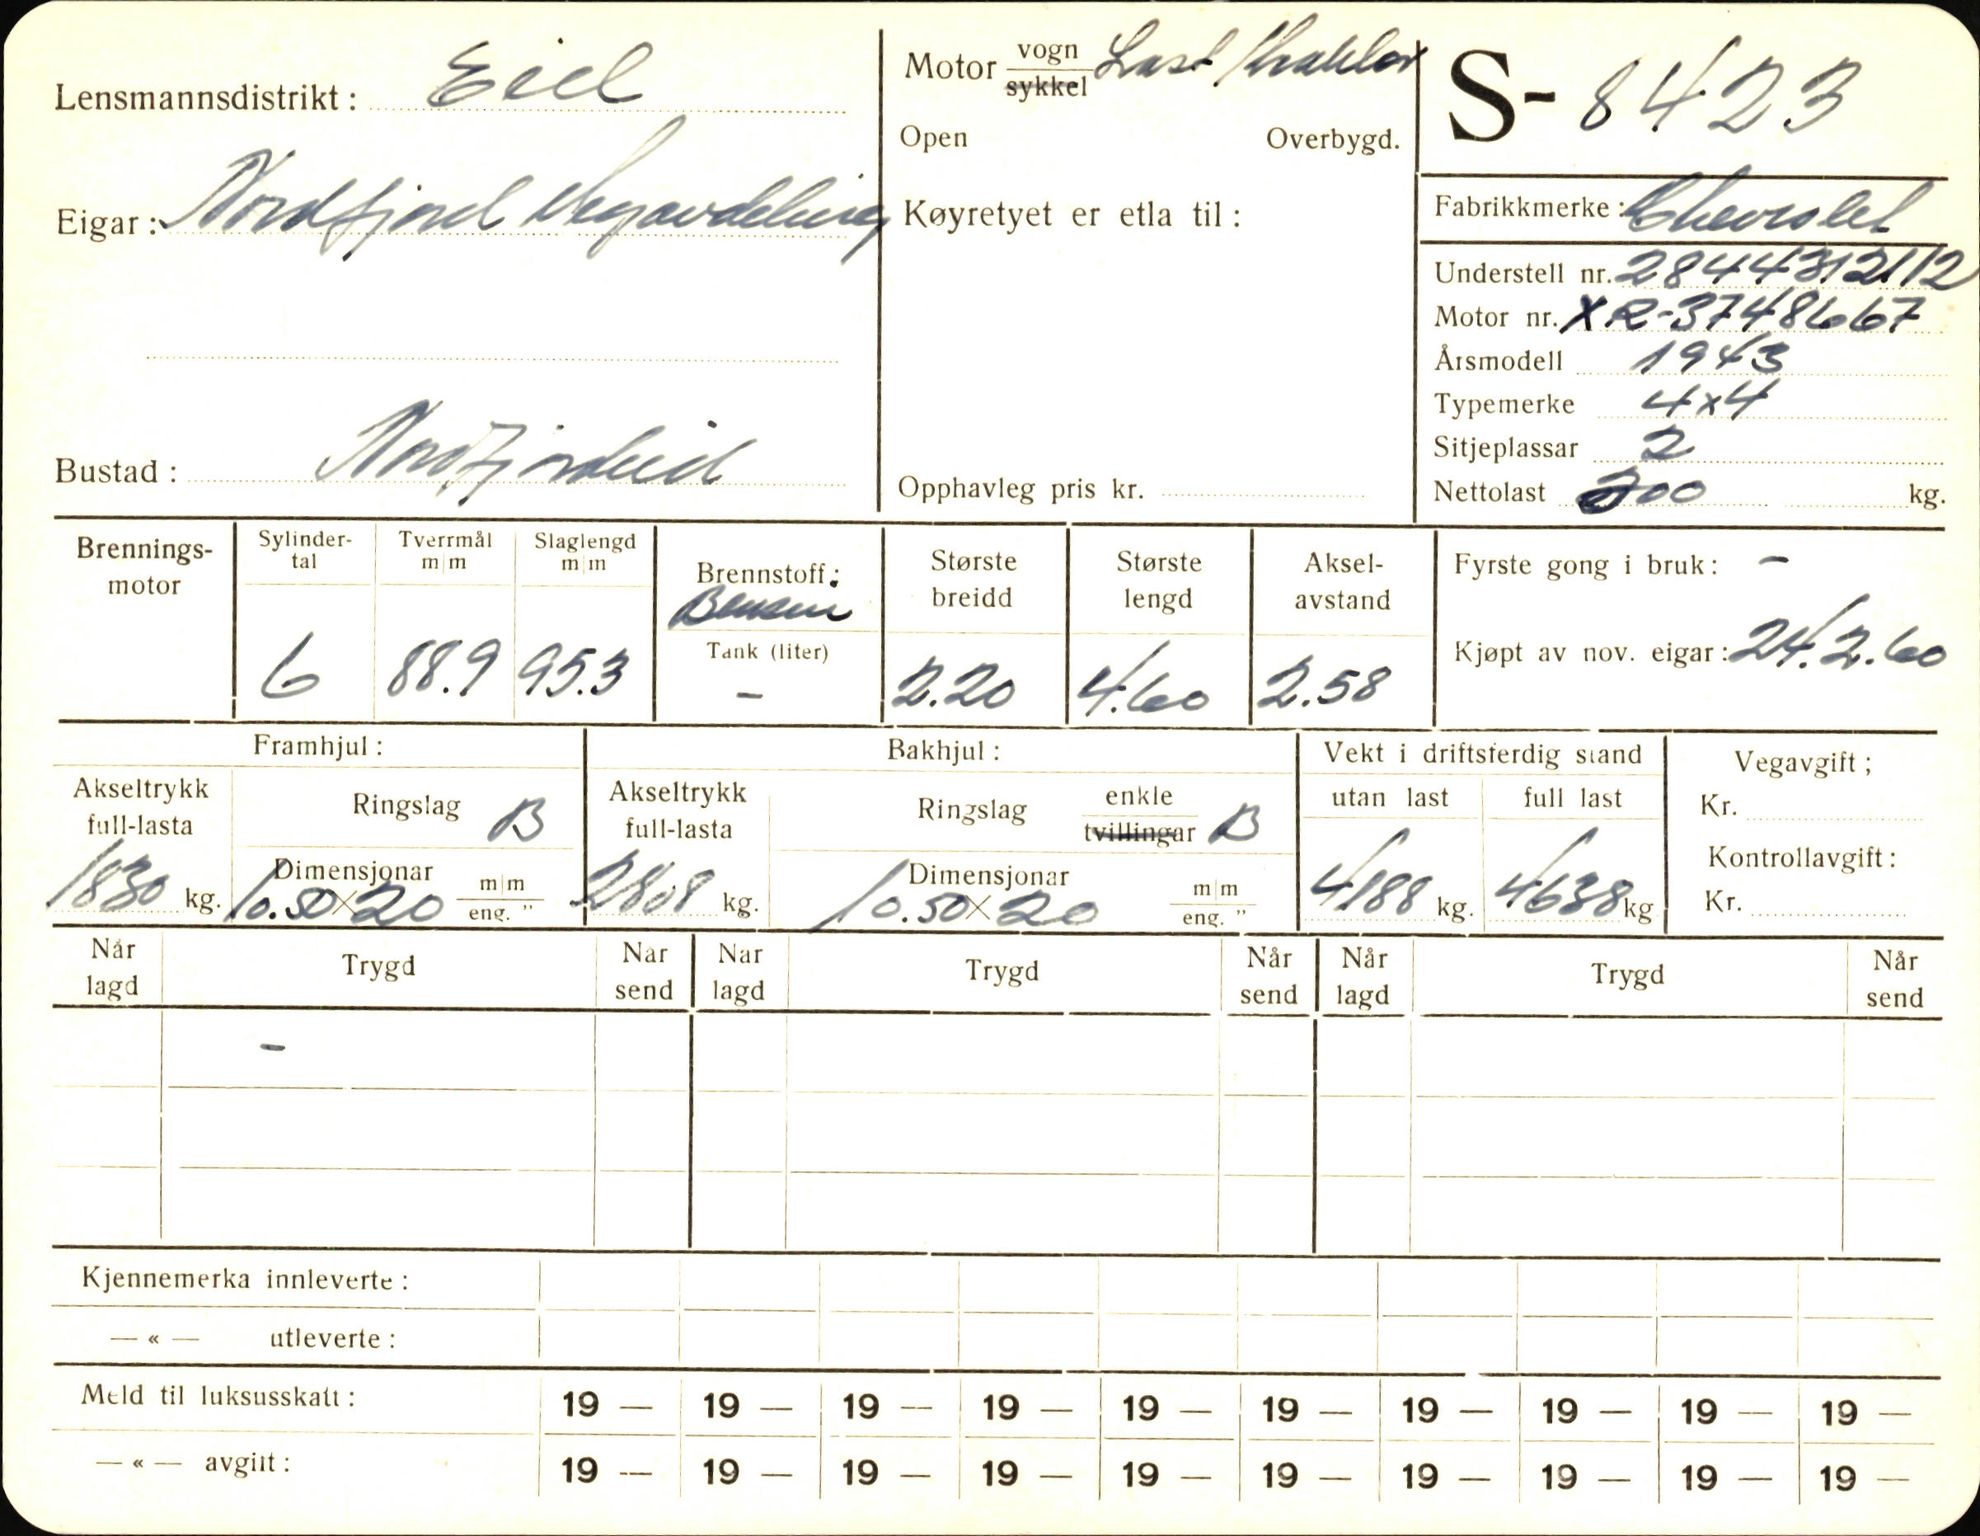 Lensmannsdistrikt: Eid
Motor vogn sykkel Last/traktor
S-8423
Open Overbygd.
Eigar: Nordfjord Vegavdeling
Køyretyet er etla til:
Fabrikkmerke: Chevrolet
Understell nr. 2844312112
Motor nr. XR-3748667
Årsmodell 1943
Typemerke 4x4
Sitjeplassar 2
Bustad: Nordfjordeid
Opphavleg pris kr.
Nettolast 200 kg.
Brennings-motor
Sylinder-tal 6
Tverrmål m|m 88.9
Slaglengd m|m 95.3
Brennstoff: Bensin
Tank (liter) -
Største breidd 2.20
Største lengd 4.60
Aksel-avstand 2.58
Fyrste gong i bruk: -
Kjøpt av nov. eigar: 24.2.60
Framhjul:
Akseltrykk full-lasta 1830 kg.
Ringslag B
Dimensjonar 10.50x20 m|m eng. "
Bakhjul:
Akseltrykk full-lasta 2808 kg.
Ringslag enkle tvillingar B
Dimensjonar 10.50x20 m|m eng. "
Vekt i driftsferdig stand
utan last full last
4188 kg. 4638 kg
Vegavgift;
Kr.
Kontrollavgift:
Kr.
Når lagd Trygd Nar send Nar lagd Trygd Når send Når lagd Trygd Når send
-
Kjennemerka innleverte:
— « — utleverte:
Meld til luksusskatt: 19 — 19 — 19 — 19 — 19 — 19 — 19 — 19 — 19 — 19 —
— « — avgift: 19 — 19 — 19 — 19 — 19 — 19 — 19 — 19 — 19 — 19 —